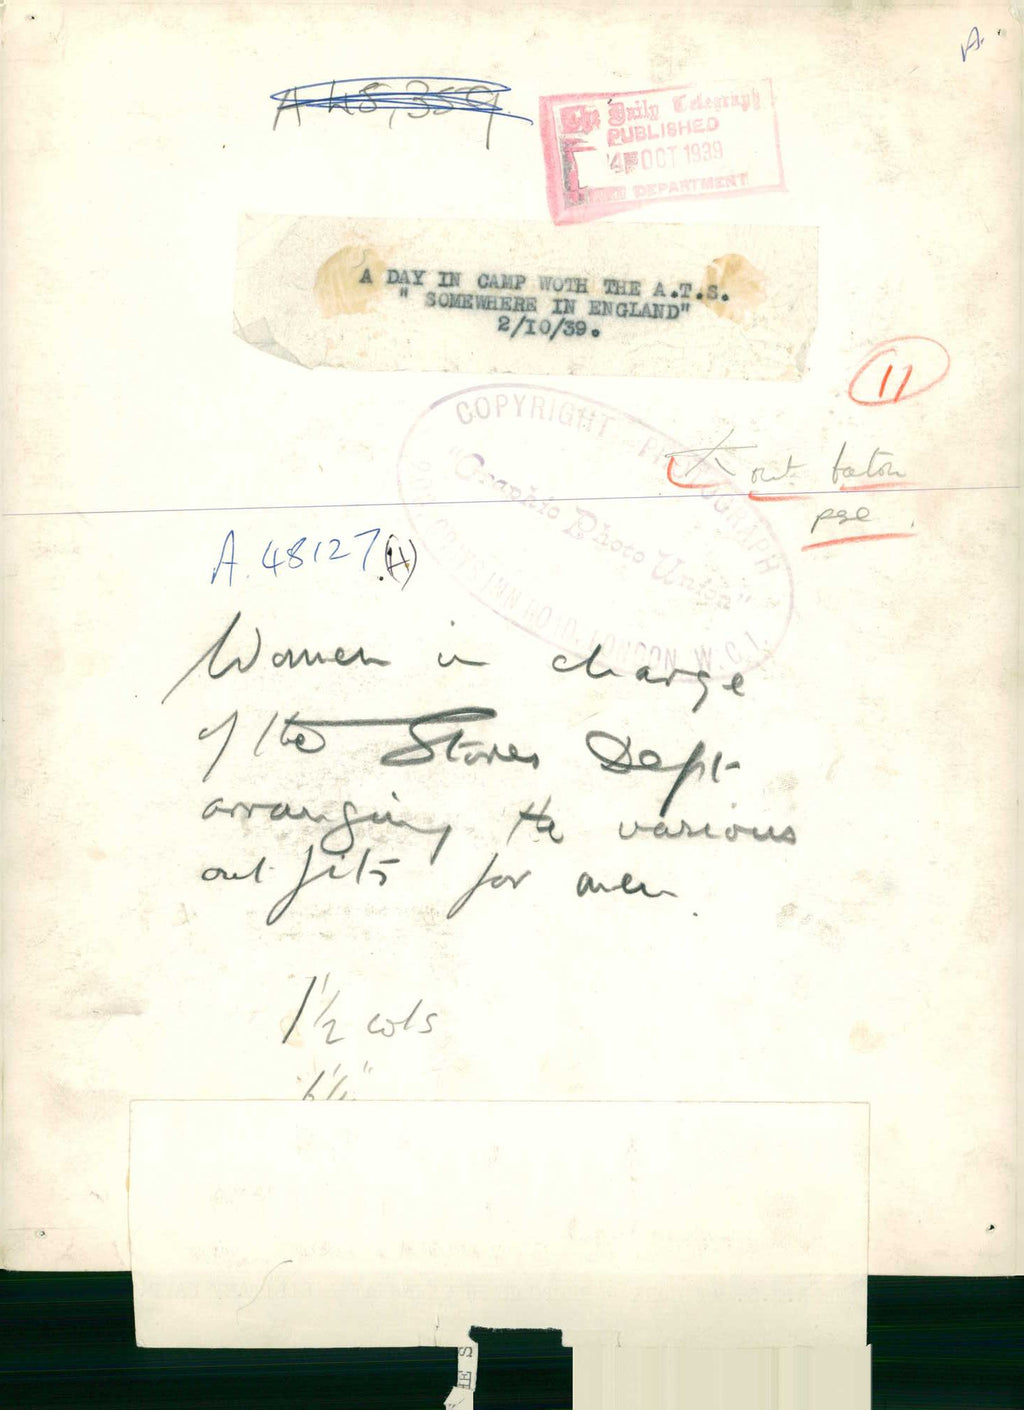 A
A 48,359
The Daily Telegraph
PUBLISHED
4 OCT 1939
DEPARTMENT
A DAY IN CAMP WOTH THE A.T.S.
" SOMEWHERE IN ENGLAND"
2/10/39.
11
COPYRIGHT PHOTOGRAPH
"Graphic Photo Union"
INN ROAD, LONDON, W.C.1.
out
pge.
A.48127(H)
Women in charge
of the Stores Dept
arranging the various
outfits for men.
1 1/2 cols
ES